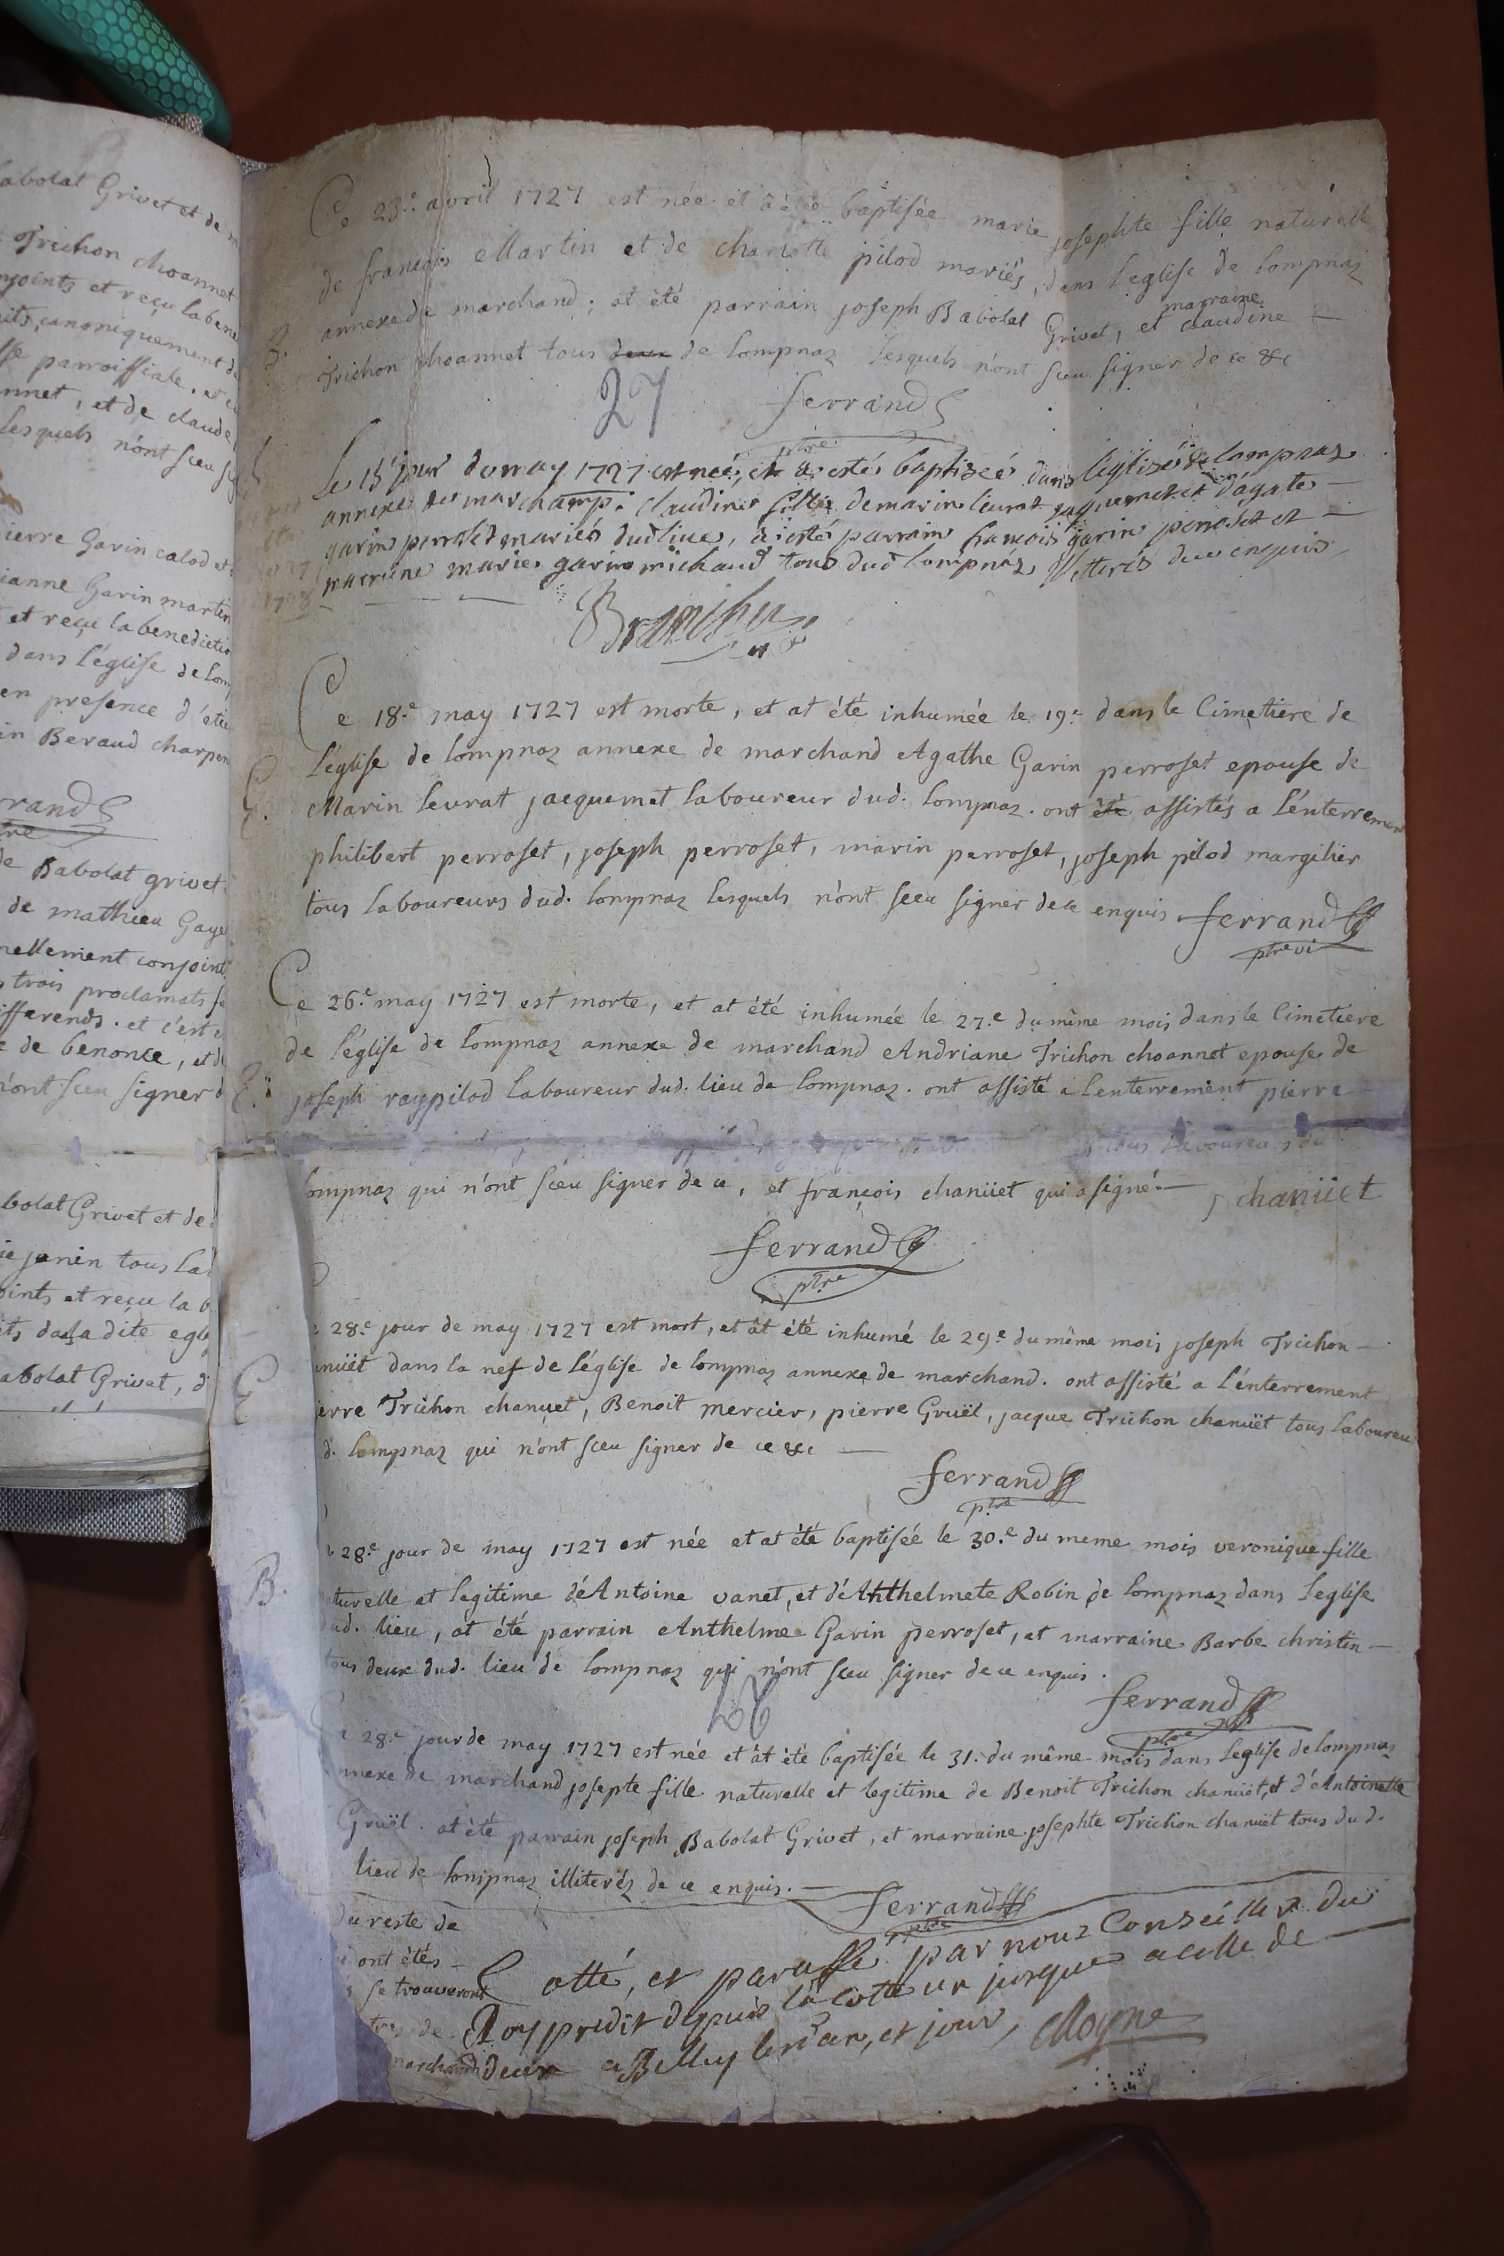 abolat Grivet et de
Trichon choannet
njoints et reçu la bene
its, canoniquement de
sse parroissiale, et
nnet, et de claude
lesquels n'ont sceu
ierre Garin calod et
ianne Garin martin
et reçu la benedictio
dans l'église de lom
en presence d'
in Beraud charpen
rrand
de Babolat grivet
de mathieu Gaye
nellement conjoint
s trois proclamats
ifferends. et c'est
de benonce, et d
n'ont sceu signer d
bolat Grivet et de
ie janin tous la
oints et reçu la b
ts da la dite egl
abolat Grivet, d
Ce 23.e avril 1727 est née et a été baptisée marie josephte fille naturelle
de françois Martin et de charlotte pilod mariés, dans l'eglise de lompnaz
annexe de marchand; at été parrain joseph Babolat Grivet, et marraine claudine
B.
Trichon choannet tous deux de lompnaz lesquels n'ont sceu signer de ce &c
27
ferrand
ptre
Le 15e jour du may 1727 est neé, et a estés baptiseé dans l'eglise de lompnaz
annexe de marchamp. Claudine fille de marin levrat jaquemet et d'agate
garin perroset mariés dud lieu, a estés parrain francois garin perroset et
marrine marie garin michaud tous dud lompnaz illiterés de ce enquis
Ce 18.e may 1727 est morte, et at été inhumée le 19.e dans le Cimetiere de
l'église de lompnaz annexe de marchand Agathe Garin perroset epouse de
E.
Marin levrat jacquemet laboureur dud. lompnaz. ont été assistés a l'enterrement
philibert perroset, joseph perroset, marin perroset, joseph pilod margilier
tous laboureurs dud. lompnaz lesquels n'ont sceu signer de ce enquis ferrand
ptre vi
Ce 26.e may 1727 est morte, et at été inhumée le 27.e du même mois dans le Cimetiere
de l'église de lompnaz annexe de marchand Andriane Trichon choannet epouse de
E.
joseph raypilod laboureur dud. lieu de lompnaz. ont assisté a lenterrement pierre
tous laboureurs du
lompnaz qui n'ont sceu signer de ce, et françois chanüet qui a signé. f chanüet
ferrand
ptre
28.e jour de may 1727 est mort, et at été inhumé le 29.e du même mois joseph Trichon
anüet dans la nef de l'église de lompnaz annexe de marchand. ont assisté a l'énterrement
E
ierre Trichon chanuet, Benoit mercier, pierre Gruël, jacque Trichon chanüet tous laboureu
d. lompnaz qui n'ont sceu signer de ce &c
ferrand
ptre
28.e jour de may 1727 est née et at été baptisée le 30.e du meme mois veronique fille
B.
aturelle et legitime d'Antoine vanet, et d'Anthelmete Robin de lompnaz dans leglise
ud. lieu, at été parrain Anthelme Garin perroset, et marraine Barbe christin
tous deux dud. lieu de lompnaz qui n'ont sceu signer de ce enquis.
ferrand
ptre
28.e jour de may 1727 est née et at été baptisée le 31. du même mois dans leglise de lompnaz
nnexe de marchand josepte fille naturelle et legitime de Benoit Trichon chanüet, et d'Antoinette
Gruël. at été parrain joseph Babolat Grivet, et marraine josephte Trichon chanuët tous dud.
lieu de lompnaz illiteréz de ce enquis.
ferrand
ptre
du reste de
ont étés
se trouveront
de
marchand
Cotté, et paraffé par nous Conseiller du
Roy predit depuis la cotte un jusque a celle de
deux a Belley les d an, et jour, Moyne